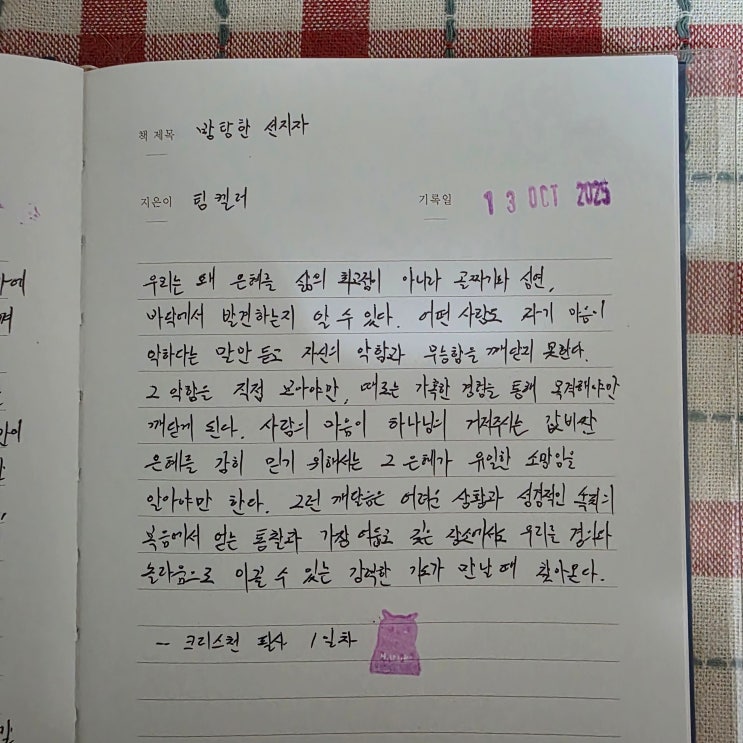 책 제목 방탕한 선지자
지은이 팀 켈러
기록일 13 OCT 2025
우리는 왜 은혜를 삶의 최고점이 아니라 골짜기와 심연,
바닥에서 발견하는지 알 수 있다. 어떤 사람도 자기 마음이
악하다는 말만 듣고 자신의 악함과 무능함을 깨닫지 못한다.
그 악함은 직접 보아야만, 때로는 가혹한 경험을 통해 목격해야만
깨닫게 된다. 사람의 마음이 하나님의 거저주시는 값비싼
은혜를 감히 믿기 위해서는 그 은혜가 유일한 소망임을
알아야만 한다. 그런 깨달음은 어려운 상황과 성경적인 속죄의
복음에서 얻는 통찰과 가장 어둡고 깊은 장소에서도 우리를 경이와
놀라움으로 이끌 수 있는 강력한 기도가 만날 때 찾아온다.
- 크리스천 필사 1일차